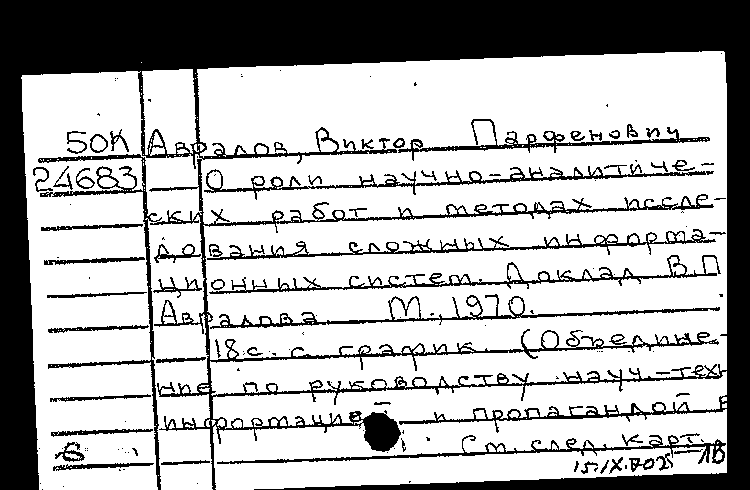 50К Авралов, Виктор Парфенович
24683 О роли научно-аналитиче-
ских работ и методах иссле-
дования сложных информа-
ционных систем. Доклад В.П
Авралова. М., 1970.
18 с. с график. (Объедине-
ние по руководству науч.-техн
информацией и пропагандой в
6 См. след. карт.
1В